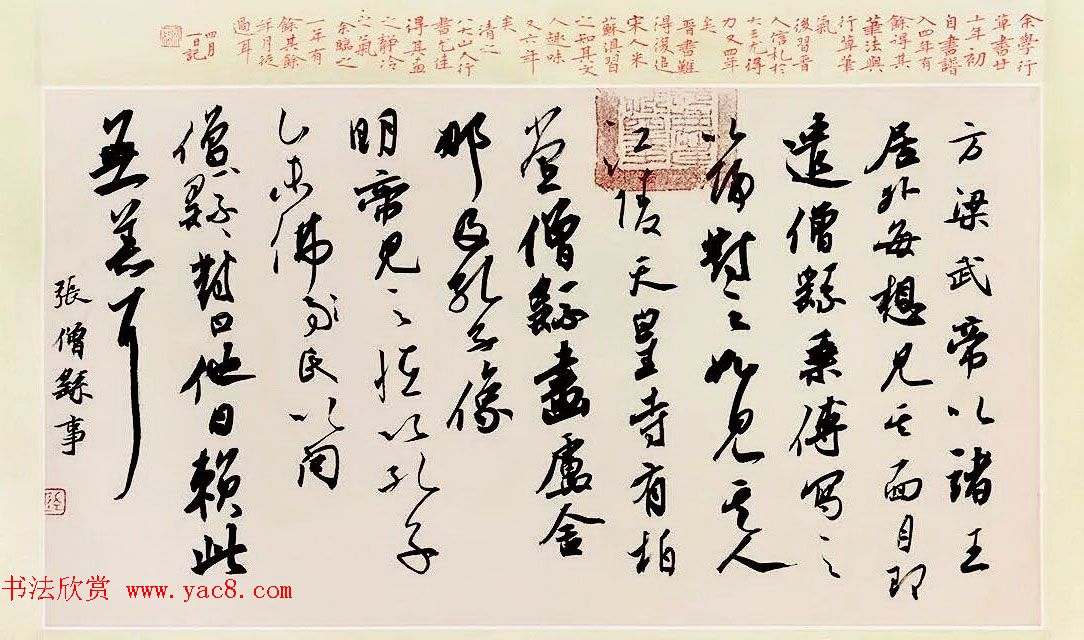 余學行
草書廿
十年初
自書譜
入四年有
餘得其
筆法與
行草筆
氣
後習晉
人信札於
大王尤得
力又四年
矣
晉書雖
得復追
宋人米
蘇俱習
之知其文
人趣味
又六年
矣
清之
八大山人行
書
得其
之静冷
之氣
余臨之
一年有
餘其餘
年月從
過耳
四月
一日記
方梁武帝以諸王
居外每想見其面目即
遣僧繇乘傳寫之
以歸對之如見其人
江陵天皇寺有柏
堂僧繇畫盧舍
那及孔子像
明帝見之怪以孔子
乃 佛家 以问
僧繇對曰他日賴此
無恙耳
張僧繇事
书法欣赏 www.yac8.com